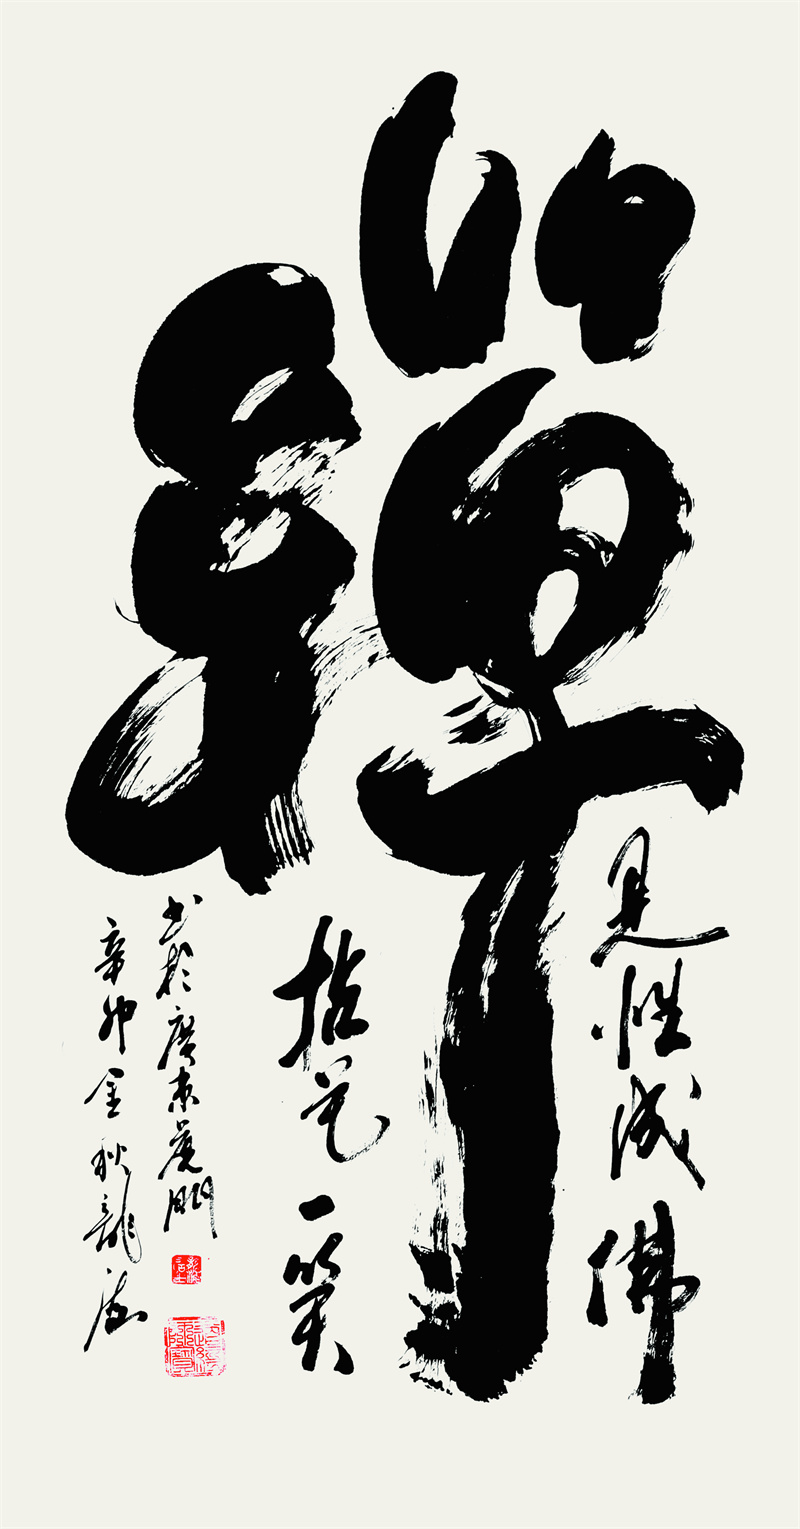 禪
見性成佛
拈花一笑
书於廣東虎門
辛卯金秋龍